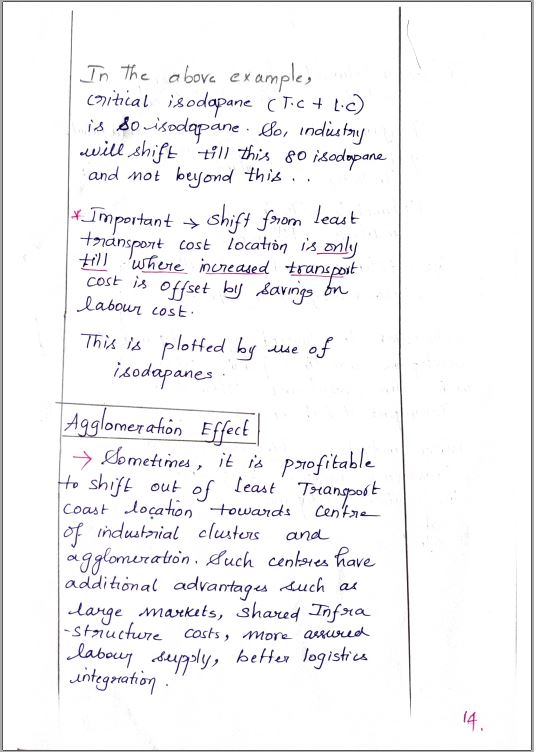 In the above example,
critical isodapane (T.C + L.C)
is 80 isodapane. So, industry
will shift till this 80 isodapane
and not beyond this . .
* Important → Shift from least
transport cost location is only
till where increased transport
cost is offset by savings on
labour cost.
This is plotted by use of
isodapanes.
Agglomeration Effect
→ Sometimes, it is profitable
to shift out of least Transport
Coast location towards centre
of industrial clusters and
agglomeration. Such centres have
additional advantages such as
large markets, shared Infra
-structure costs, more assured
labour supply, better logistics
integration.
14.